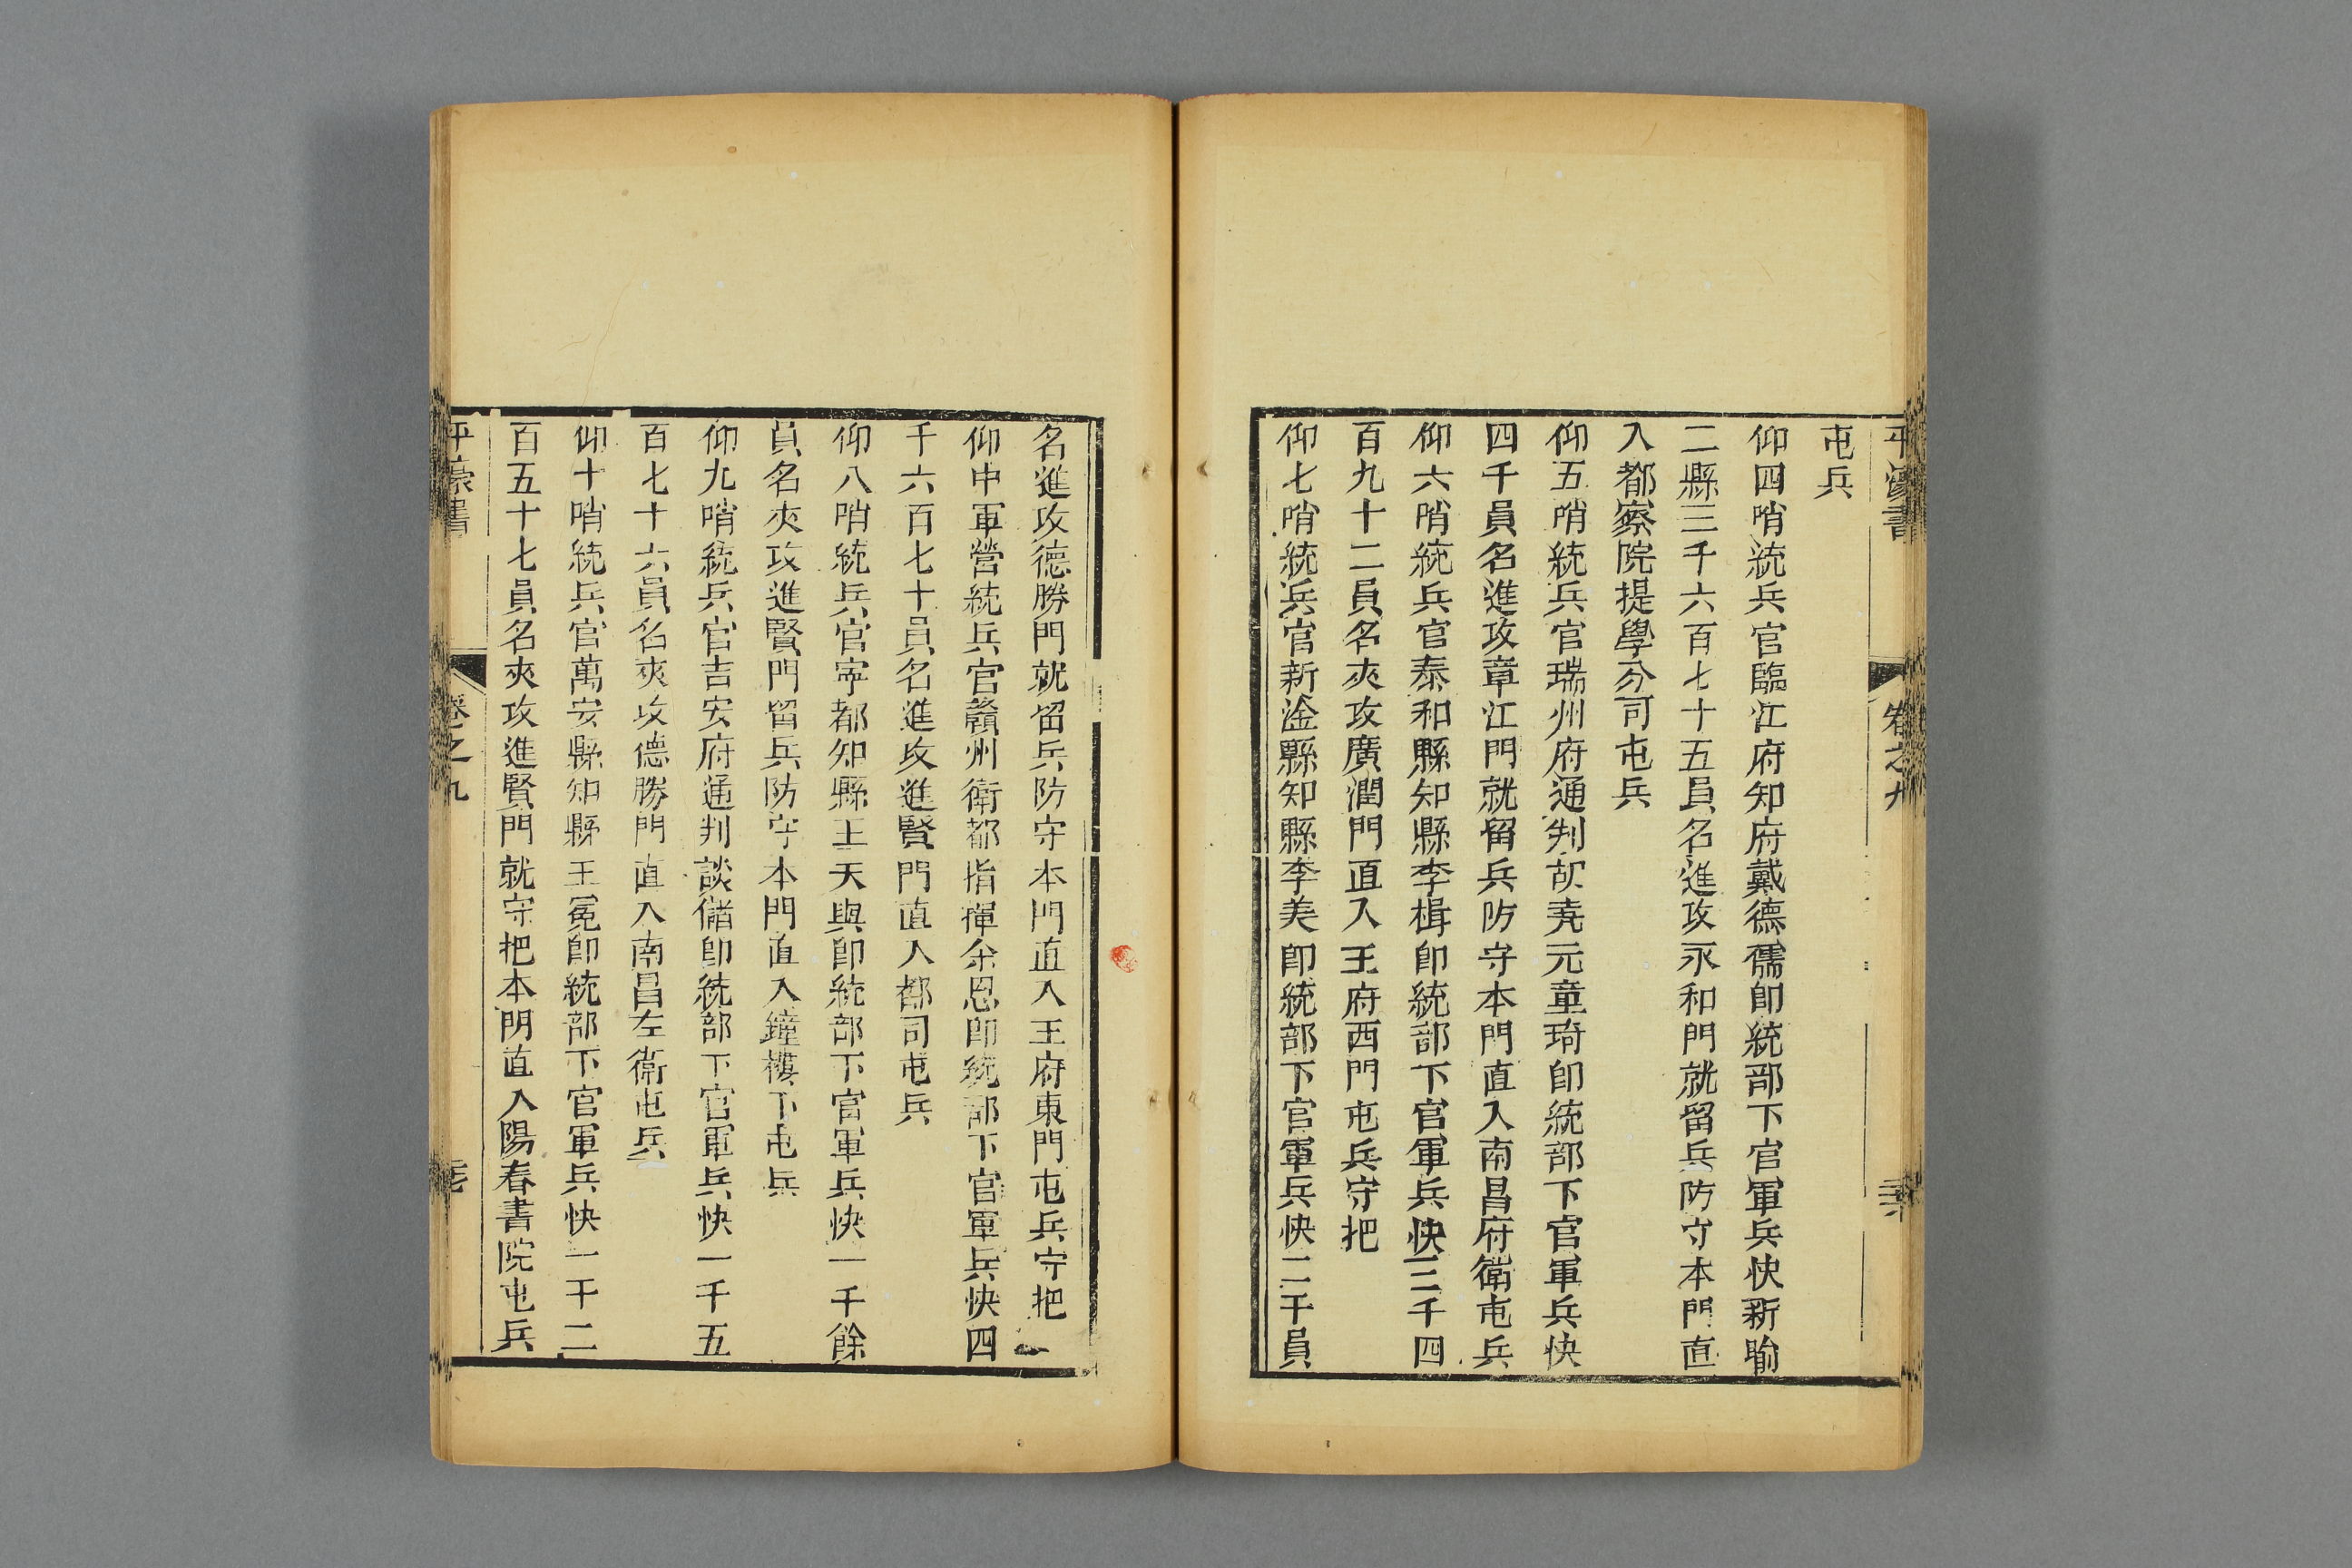 平濠書
卷之九
屯兵
仰四哨統兵官臨江府知府戴德孺卽統部下官軍兵快新喻
二縣三千六百七十五員名進攻永和門就留兵防守本門直
入都察院提學分司屯兵
仰五哨統兵官瑞州府通判胡堯元童琦卽統部下官軍兵快
四千員名進攻章江門就留兵防守本門直入南昌府衛屯兵
仰六哨統兵官泰和縣知縣李楫卽統部下官軍兵快三千四
百九十二員名夾攻廣潤門直入王府西門屯兵守把
仰七哨統兵官新淦縣知縣李美卽統部下官軍兵快二千員
名進攻德勝門就留兵防守本門直入王府東門屯兵守把
仰中軍營統兵官贛州衛都指揮余恩卽統部下官軍兵快四
千六百七十員名進攻進賢門直入都司屯兵
仰八哨統兵官寧都知縣王天與卽統部下官軍兵快一千餘
員名夾攻進賢門留兵防守本門直入鐘樓下屯兵
仰九哨統兵官吉安府通判談儲卽統部下官軍兵快一千五
百七十六員名夾攻德勝門直入南昌左衛屯兵
仰十哨統兵官萬安縣知縣王冕卽統部下官軍兵快一千二
百五十七員名夾攻進賢門就守把本門直入陽春書院屯兵
平濠書
卷之九